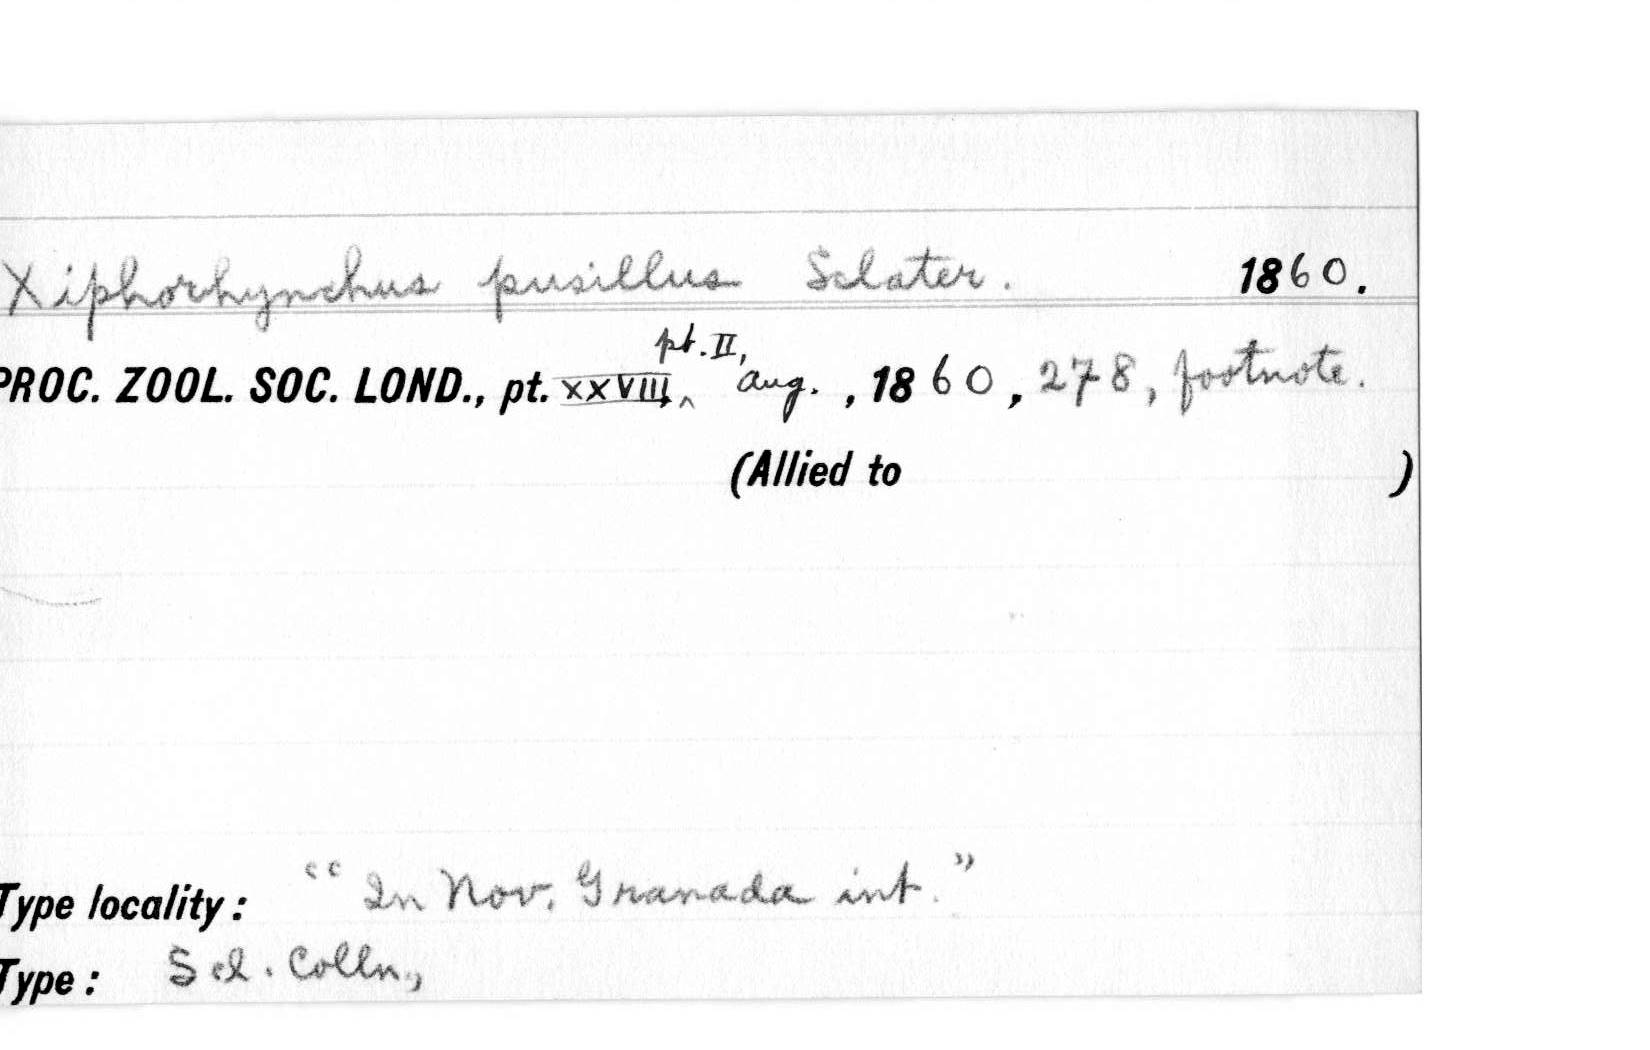 Xiphorhynchus pusillus Sclater. 1860.
pt. II,
PROC. ZOOL. SOC. LOND., pt. XXVIII, ^ Aug. , 1860, 278, footnote.
(Allied to )
Type locality : "In Nov. Granada int."
Type : Scl. Colln.,